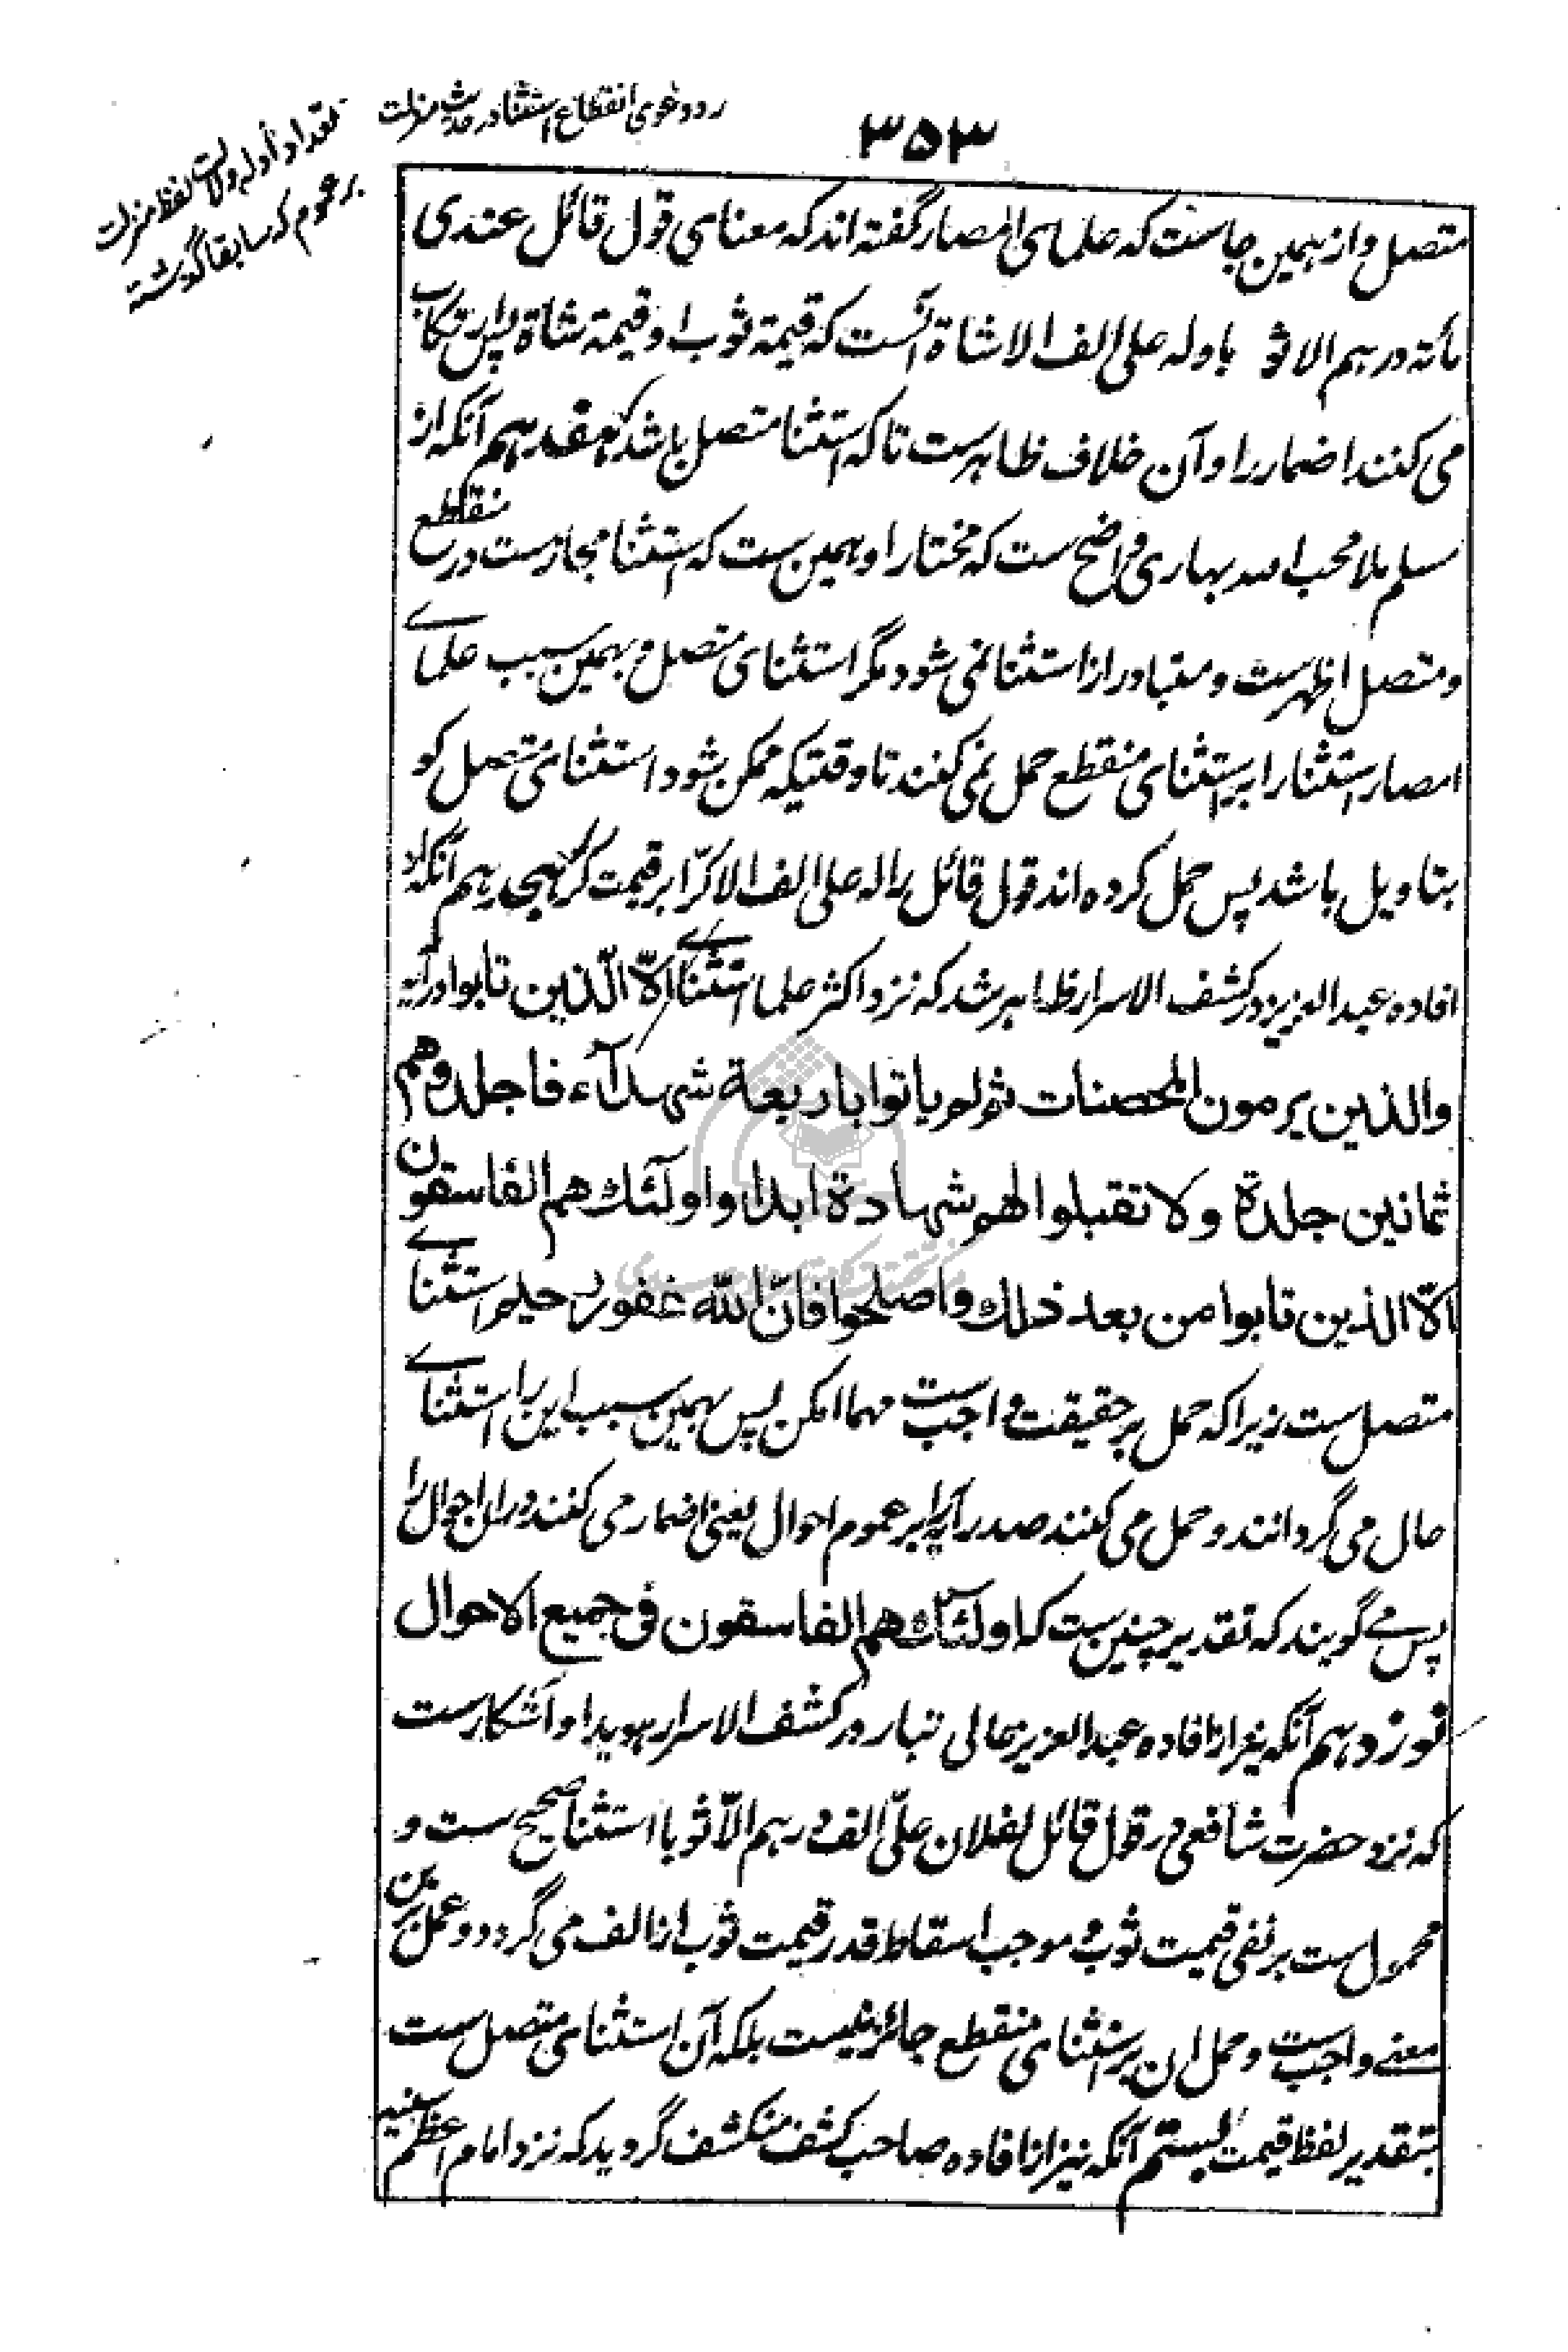 ۳۵۳
رد دعوی انقطاع استثنا در حدیث منزلت
تعداد أدله دلالت لفظ منزلت
بر عموم که سابقا گذشته
متصل و از همین جاست که علمای امصار گفته اند که معنای قول قائل عندی
مائة درهم الا ثوبا وله علی الف الا شاة آنست که قیمة ثوب او قیمة شاة پس ارتکاب
می کنند اضمار را و آن خلاف ظاهرست تا که استثنا متصل باشد هفدهم آنکه از
مسلم ملا محب الله بهاری واضح ست که مختار او همین ست که استثنا مجازست در منقطع
و متصل اظهرست و متبادر از استثنا نمی شود مگر استثنای متصل و بهمین سبب علمای
امصار استثنا را بر استثنای منقطع حمل نمی کنند تا وقتیکه ممکن شود استثنای متصل گو
بتاویل باشد پس حمل کرده اند قول قائل را له علی الف الا کرّا بر قیمت کر هیجدهم آنکه از
افاده عبد العزیز در کشف الاسرار ظاهر شد که نزد اکثر علما استثنای الّا الّذین تابوا در آیه
والذین یرمون المحصنات ثم لم یاتوا باربعة شهدآء فاجلدوهم
ثمانین جلدة ولا تقبلوا لهم شهادة ابدا واولئك هم الفاسقون
الّا الذین تابوا من بعد ذلك واصلحوا فانّ الله غفور رحیم استثنای
متصل ست زیرا که حمل بر حقیقت واجب ست مهما امکن پس بهمین سبب این را استثنای
حال می گردانند و حمل می کنند صدر آیه را بر عموم احوال یعنی اضمار می کنند در ان احوال را
پس می گویند که تقدیر چنین ست که اولئك هم الفاسقون فی جمیع الاحوال
نوزدهم آنکه نیز از افاده عبد العزیز عالی تبار در کشف الاسرار هویدا و آشکارست
که نزد حضرت شافعی در قول قائل لفلان علیّ الف درهم الّا ثوبا استثنا صحیح ست و
محمول ست بر نفی قیمت ثوب و موجب اسقاط قدر قیمت ثوب از الف می گردد و عمل برین
معنی واجب ست و حمل ان بر استثنای منقطع جائز نیست بلکه آن استثنای متصل ست
بتقدیر لفظ قیمت بستم آنکه نیز از افاده صاحب کشف منکشف گردید که نزد امام اعظم سنیه